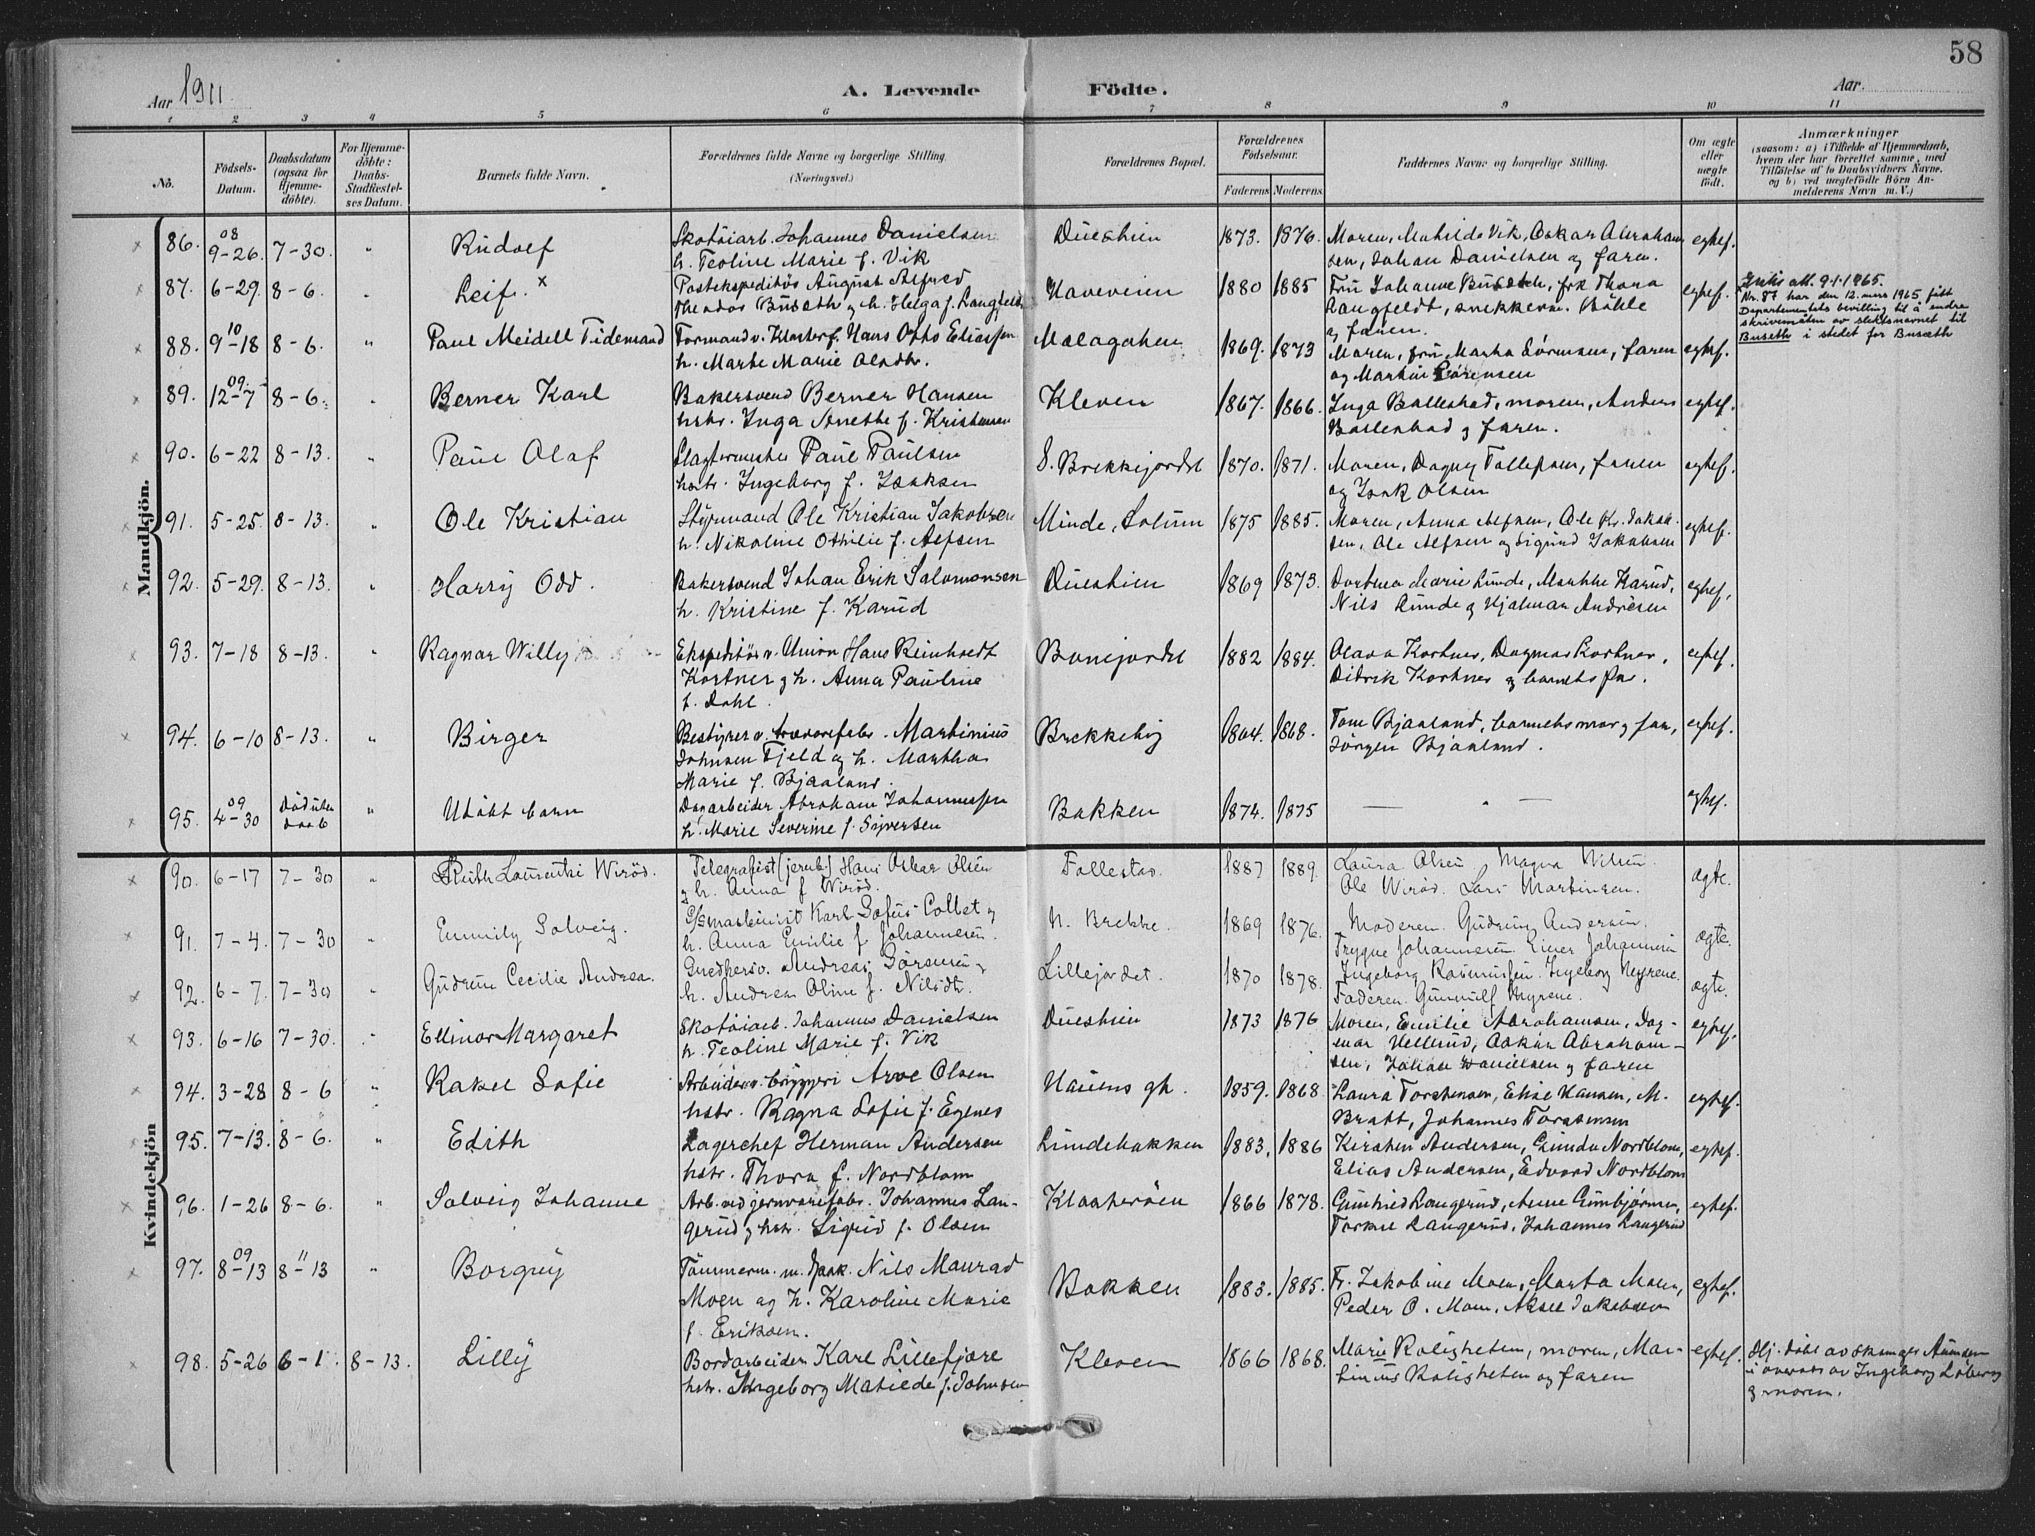 58
Aar 1911.
A. Levende Födte.
Aar
1 2 3 4 5 6 7 8 9 10 11
No.
Födsels-
Datum.
Daabsdatum
(ogsaa for
Hjemme-
döbte).
For Hjemme-
döbte:
Daabs-
Stadfæstel-
ses Datum.
Barnets fulde Navn.
Forældrenes fulde Navne og borgerlige Stilling.
(Næringsvei.)
Forældrenes Bopæl.
Forældrenes
Födselsaar.
Faderens Moderens
Faddernes Navne og borgerlige Stilling.
Om ægte
eller
uægte
födt.
Anmærkninger
(saasom: a) i Tilfælde af Hjemmedaab,
hvem der har forrettet samme, med
Tilföielse af to Daabsvidners Navne,
og b) ved uægtefödte Börn An-
melderens Navn m. V.)
Mandkjön.
86. 08 9-26. 7-30. " Rudolf
Skotöiarb. Johannes Danielsen
h. Teoline Marie f. Vik
Dueshien 1873. 1876.
Moren, Mathilde Vik, Oskar Abraham
sen, Johan Danielsen og faren.
eghef.
87. 6-29. 8-6. " Leif. x
Postekspeditös August Alfred
Theodor Buseth og h. Helga f. Langfeldt
Haveveien 1880 1885
Fru Johanne Buseth, frk Thora
Langfeldt, snekkerm. Böhle
og faren.
eghef.
Nr. 87 har den 12. mars 1965 fått
Departementets bevilling til å endre
skrivemåten av slektsnavnet til
Buseth i stedet for Busæth
88. 10 9-18 8-6. " Paul Meidell Tidemand
Formand v. Klosterf. Hans Otto Eliassen
h. Marte Marie
1869. 1873
Moren, fru Martha Sörensen, faren
og Martin Sörensen
eghef.
89. 09. 12-7 8-6. " Berner Karl
Bakersvend Berner Hansen
hstr. Inga Anethe f. Kristensen
Kleven 1867. 1866.
Inga Ballestad, moren, Anders
Ballestad og faren.
eghef.
90. 6-22 8-13. " Paul Olaf
Slagtermester Paul Paulsen
hstr. Ingeborg f. Isaksen
S. Brekkejordet 1870. 1871.
Moren, Dagny Tollefsen, faren
og Isak Olsen
eghef.
91. 5-25. 8-13. " Ole Kristian
Styrmand Ole Kristian Jakobsen
h. Nikoline Othilie f. Alfsen
Minde, Solum 1875 1885.
Moren, Anna Alfsen, Ole Kr. Jakob-
sen, Ole Alfsen og Sigurd Jakobsen
eghef.
92. 5-29. 8-13. " Harry Odd.
Bakersvend Johan Erik Salomonsen
h. Kristine f. Karud
Dueshien 1869 1873.
Dorthea Marie Lunde, Marthe Karud,
Nils Lunde og Hjalmar Andresen
eghef.
93. 7-18 8-13. " Ragnar Willy
Ekspeditör v. Union Hans Reinhardt
Kortner og h. Anna Pauline
f. Dahl.
Bonejordet 1882 1884.
Olava Kortner, Dagmar Kortner,
Didrik Kortner og barnets far.
eghef.
94. 6-10 8-13. " Birger
Bestyrer v. trævarefabr. Martinius
Johnsen Fjeld og h. Martha
Marie f. Bjaaland.
Brekkeby 1864. 1868.
Tone Bjaaland, barnets mor og far,
Jörgen Bjaaland.
eghef.
95. 09 4-30 Död uden daab " Udöbt barn
Dagarbeider Abraham Johannessen
h. Marie Severine f. Syversen
Bakken 1874. 1875 — " — eghef.
Kvindekjön
90. 6-17 7-30 " Ruth Laurentze Wiröd.
Telegrafist (jernb.) Hans Oskar Olsen
og h. Anna f. Wiröd.
Follestad. 1887 1889.
Laura Olsen Magna Nilsen.
Ole Wiröd. Lars Martinsen.
ægte.
91. 7-4. 7-30 " Emmily Solveig.
Karl Sofus Colbet og
h. Anna Emilie f. Johannesen.
N. Brekke. 1869 1876.
Moderen. Gudrun Andersen.
Trygve Johannesen. Einar Johannesen
ægte.
92. 6-7. 7-30 " Gudrun Cecilie Andrea.
Andreas Sörensen og
h. Andrea Oline f. Nilsdtr.
Lillejordet. 1870 1878.
Ingeborg Rasmussen. Ingeborg Myrene.
Faderen. Gunnulf Myrene.
ægte.
93. 6-16 7-30. " Ellinor Margaret
Skotöiarb. Johannes Danielsen
h. Teoline Marie f. Vik
Dueshien 1873 1876
Moren, Emilie Abrahamsen, Dag-
mar Hellerud, Oskar Abraham-
sen, Johan Danielsen og faren
eghef.
94. 3-28 8-6 " Rakel Sofie
Arbeider v. bryggeri Arve Olsen
hstr. Ragna Sofie f. Egenes
Hauens gt. 1859. 1868
Laura Torstensen, Elise Hansen, M.
Bratt, Johannes Torstensen
eghef.
95. 7-13. 8-6. " Edith
Lagerchef Herman Andersen
hstr. Thora f. Nordblom
Lindebakken 1883. 1886
Kirsten Andersen, Gunda Nordblom,
Elias Andersen, Edvard Nordblom
eghef.
96. 1-26 8-6. " Solveig Johanne
Arb. ved jernvarefabr. Johannes Lan-
gerud og hstr. Sigrid f. Olsen
Klosteröen 1866 1878.
Gunhild Langerud, Anne Gunbjörnsen,
Torkel Langerud, Johannes Langerud
eghef.
97. 09 8-13 11 8-13 " Borgny
Tömmerm. m. Nils Maurad
Moen og h. Karoline Marie
f. Eriksen.
Bakken 1883. 1885.
Fr. Jakobine Moen, Marta Moen,
Peder O. Moen, Aksel Jakobsen
eghef.
98. 5-26 6-1. 8-13. Lilly
Bordarbeider Karl Lillefjære
hstr. Ingeborg Matilde f. Johnsen
Kleven 1866 1868.
Marie Roligheten, moren, Mar-
tinius Roligheten og faren
eghef.
Hj. döbt av
i overvær av Ingeborg
og moren.